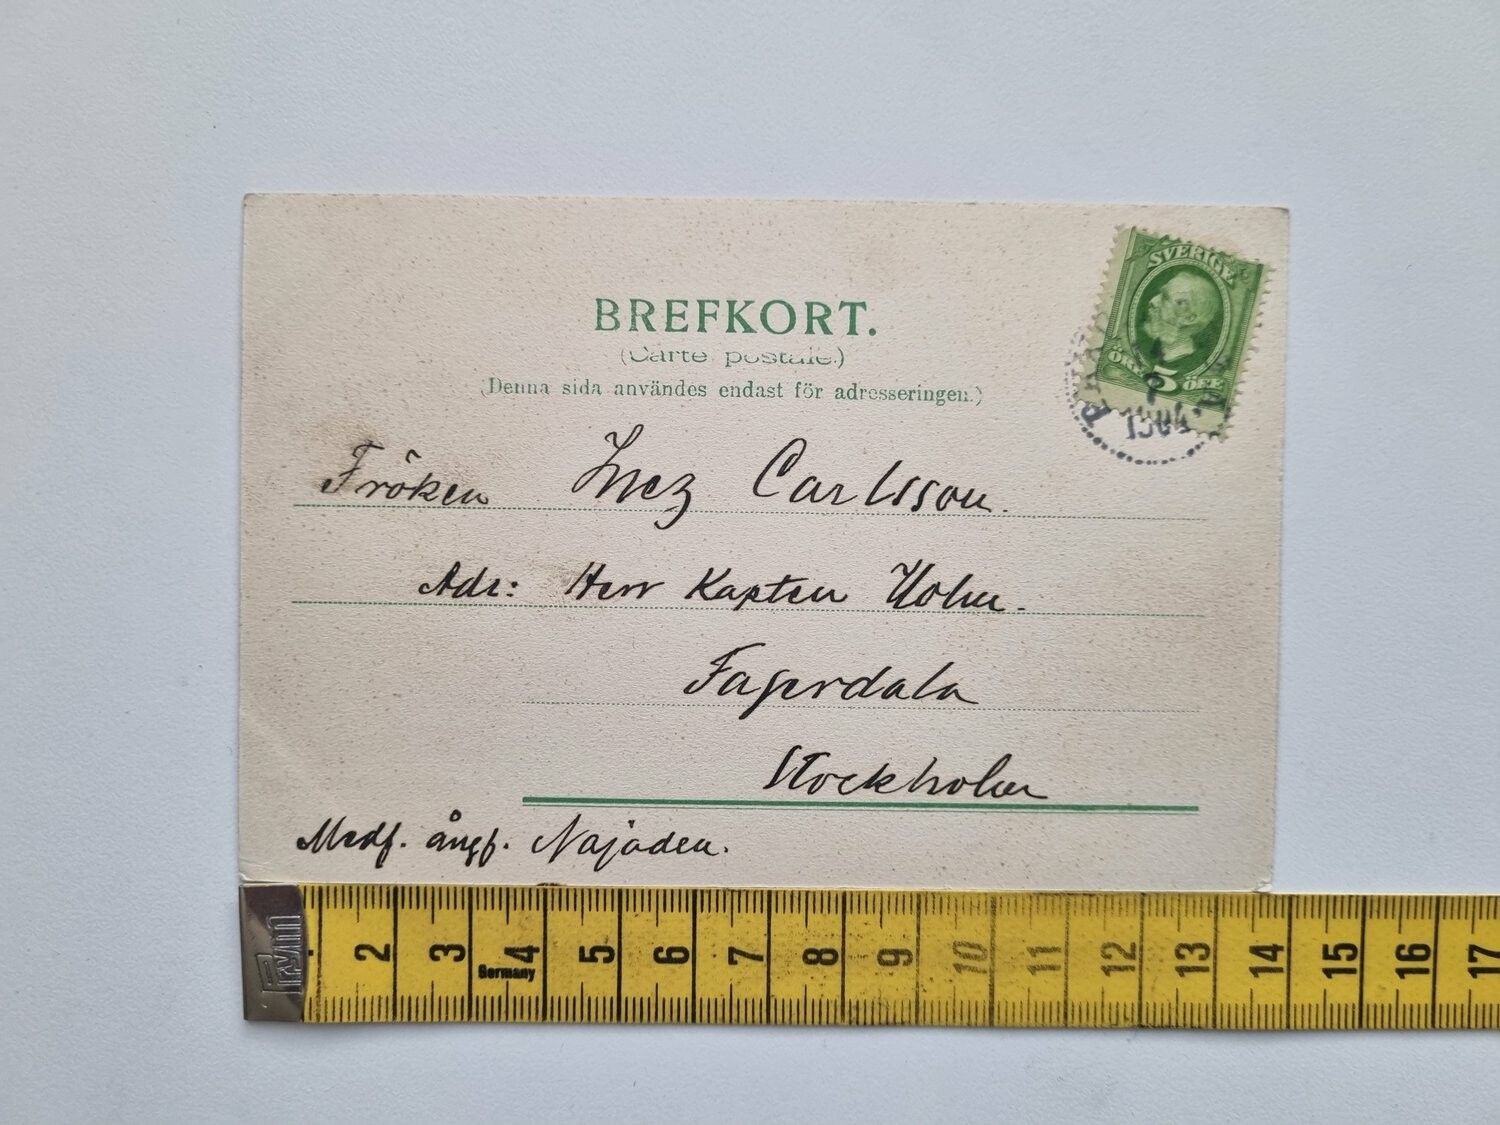 BREFKORT.
(Carte postale.)
(Denna sida användes endast för adresseringen.)
SVERIGE
ÖRE 5 ÖRE
Fröken Inez Carlsson.
Adr: Herr Kapten Holm.
Fagerdala
Stockholm
Medf. ångf. Najaden.
Prym
Germany
2 3 4 5 6 7 8 9 10 11 12 13 14 15 16 17